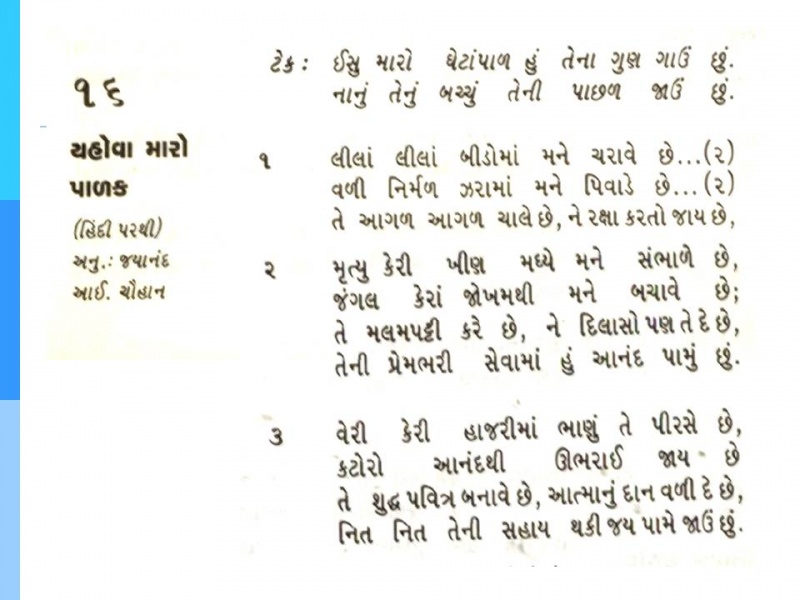 ૧૬
યહોવા મારો
પાળક
(હિંદી પરથી)
અનુ.: જયાનંદ
આઈ. ચૌહાન
ટેક : ઈસુ મારો ઘેટાંપાળ હું તેના ગુણ ગાઉં છું.
નાનું તેનું બચ્ચું તેની પાછળ જાઉં છું.
૧ લીલાં લીલાં બીડોમાં મને ચરાવે છે...(૨)
વળી નિર્મળ ઝરામાં મને પિવાડે છે...(૨)
તે આગળ આગળ ચાલે છે, ને રક્ષા કરતો જાય છે,
૨ મૃત્યુ કેરી ખીણ મધ્યે મને સંભાળે છે,
જંગલ કેરાં જોખમથી મને બચાવે છે;
તે મલમપટ્ટી કરે છે, ને દિલાસો પણ તે દે છે,
તેની પ્રેમભરી સેવામાં હું આનંદ પામું છું.
૩ વેરી કેરી હાજરીમાં ભાણું તે પીરસે છે,
કટોરો આનંદથી ઊભરાઈ જાય છે
તે શુદ્ધ પવિત્ર બનાવે છે, આત્માનું દાન વળી દે છે,
નિત નિત તેની સહાય થકી જય પામે જાઉં છું.